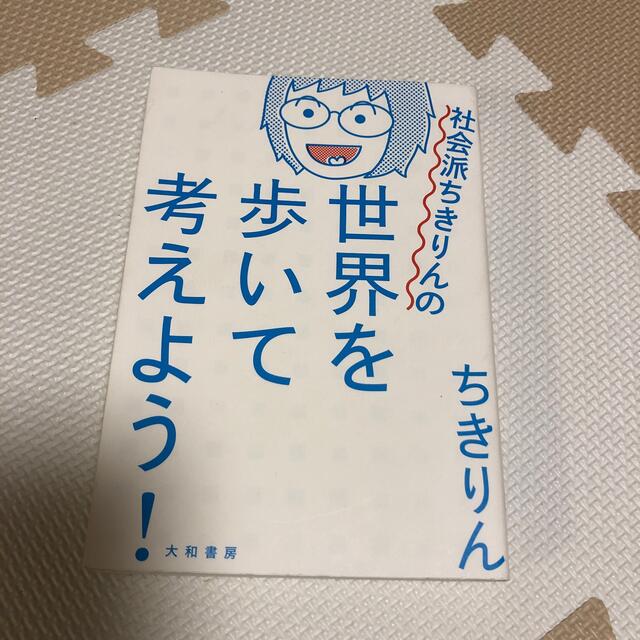 社会派ちきりんの
世界を
歩いて
考えよう！
ちきりん
大和書房